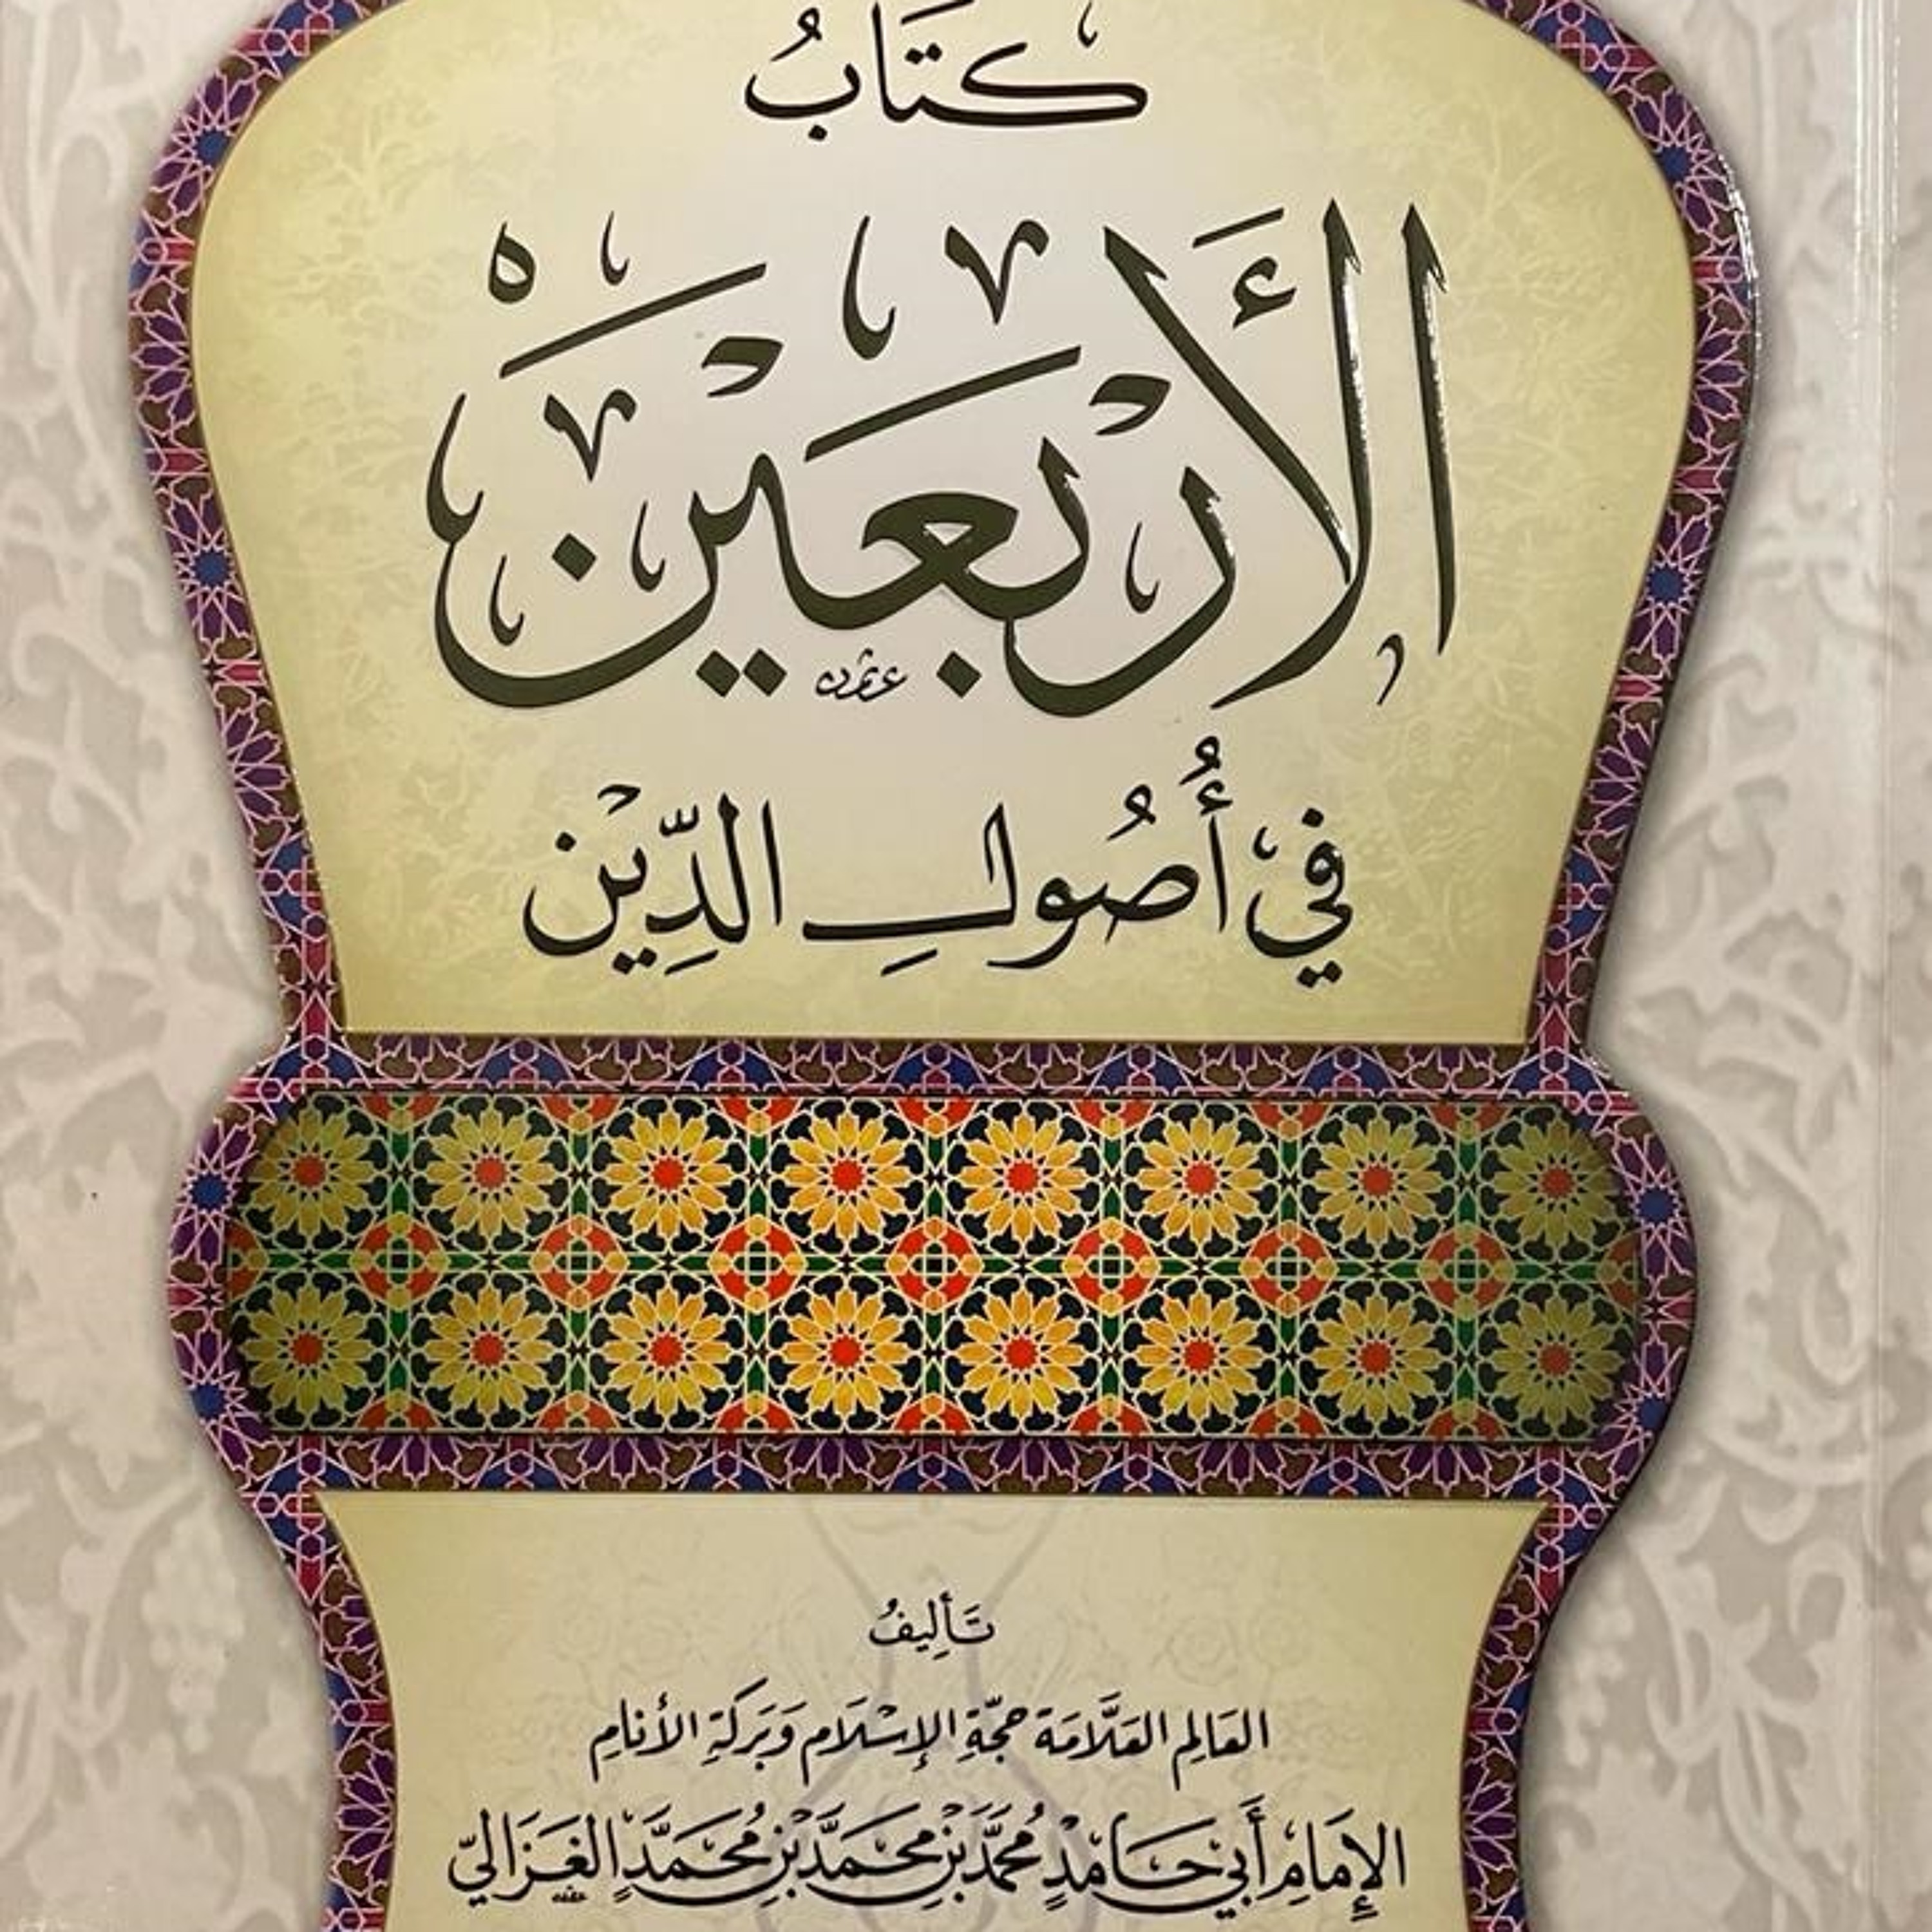 كتَابُ
الأَرْبَعِيْنَ
في أُصُولِ الدِّيْن
تَأليفُ
العَالِم العَلَّامَة حجّةِ الإسْلَام وَبَرَكَةِ الأنامِ
الإِمَامِ أَبي حَامِدٍ مُحمَّد بْنِ محمَّد بْنِ مُحَمَّدٍ الغَزَاليّ